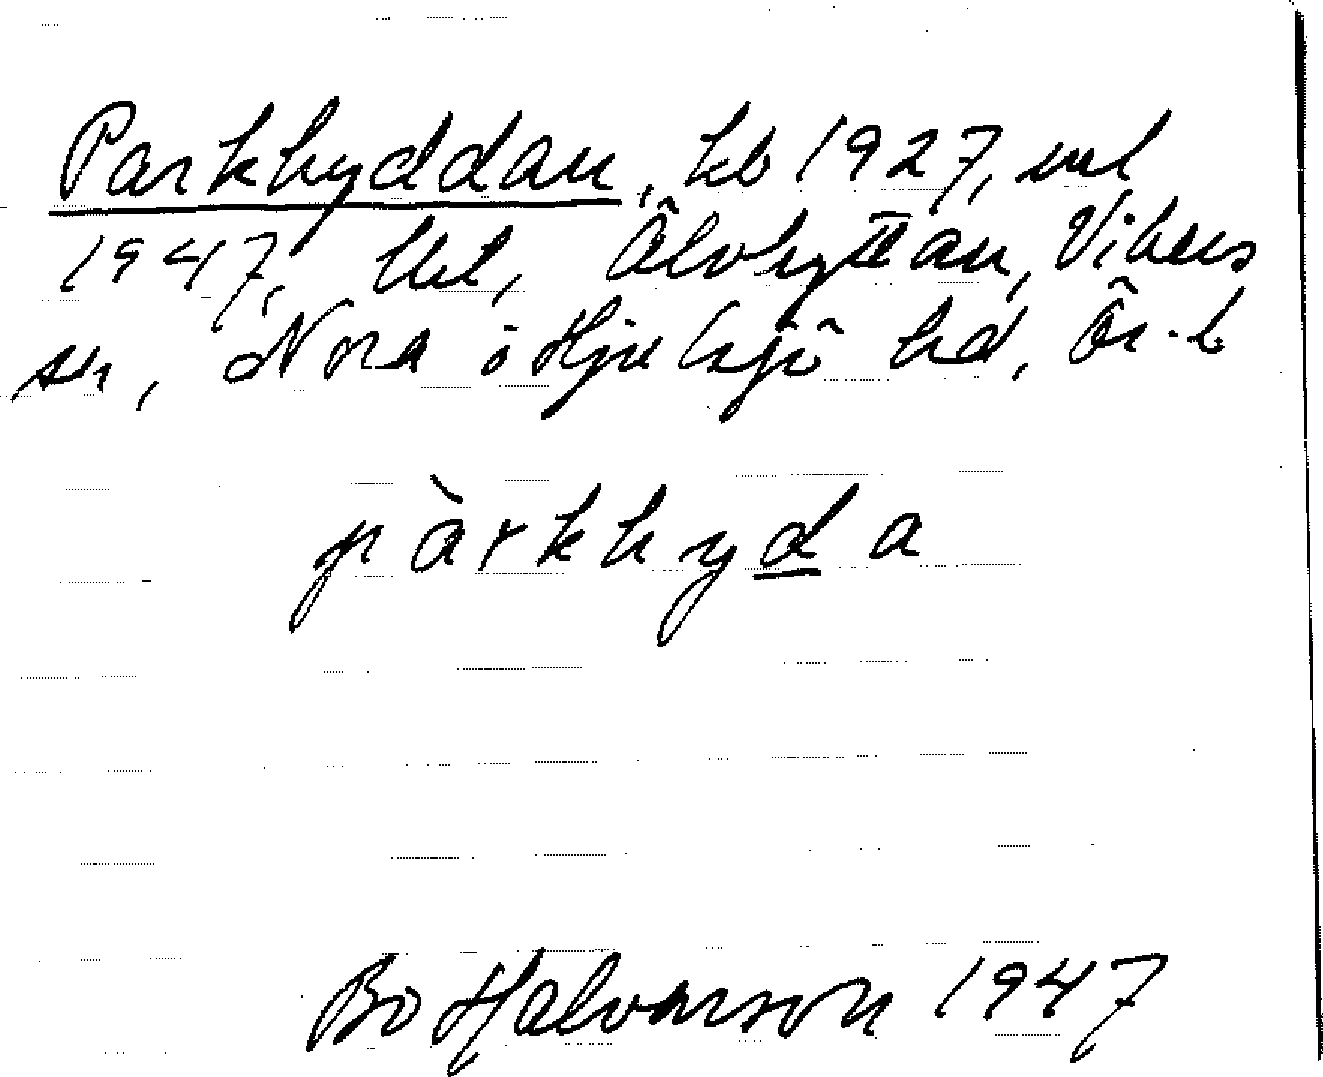 Parkhyddan, kb 1927, ml
1947, lht, Älvhyttan, Vikers
sn, Nora o Hjulsjö hd, Ör. l
pàrkhyda
Bo Halvarson 1947